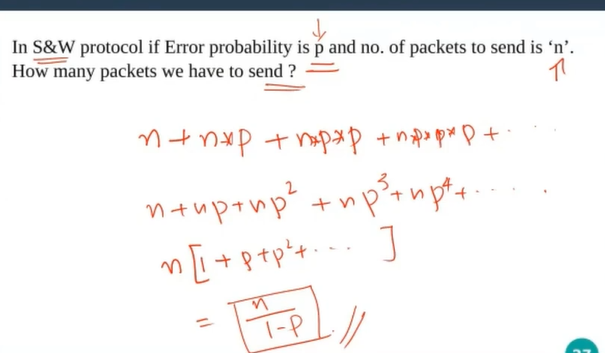 In S&W protocol if Error probability is p and no. of packets to send is ‘n’.
How many packets we have to send ?
n + n*p + n*p*p + n*p*p*p + . . . .
n + np + np² + np³ + np⁴ + . . . . .
n [ 1 + p + p² + . . . . ]
= n / 1-p //
27